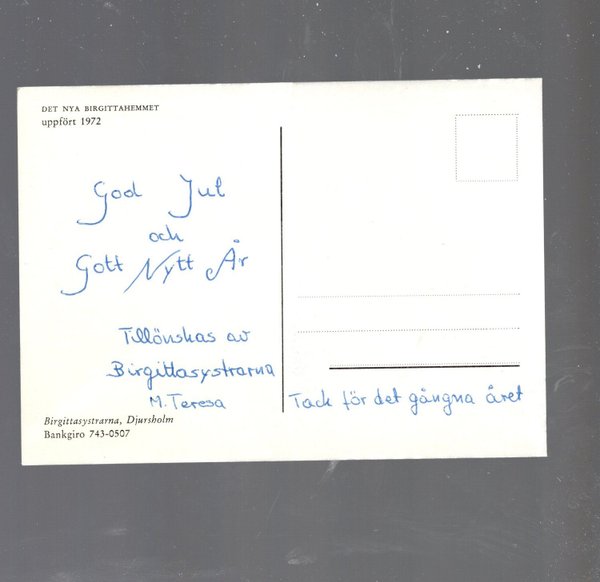 DET NYA BIRGITTAHEMMET
uppfört 1972
God Jul
och
Gott Nytt År
Tillönskas av
Birgittasystrarna
M. Teresa
Tack för det gångna året
Birgittasystrarna, Djursholm
Bankgiro 743-0507